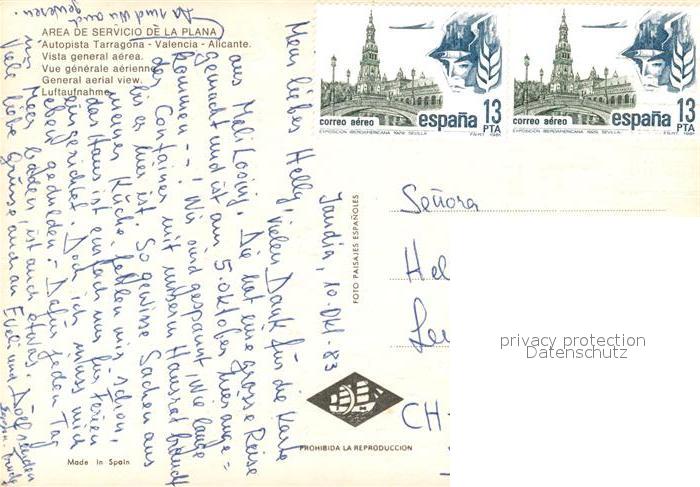 As sind wir auch
gewesen.
AREA DE SERVICIO DE LA PLANA
Autopista Tarragona - Valencia - Alicante.
Vista general aérea.
Vue générale aérienne.
General aerial view.
Luftaufnahme.
Jandia, 10. Okt. 83
Mein liebes Helly, vielen Dank für die Karte
aus Mali Losinj. Die hat eine grosse Reise
gemacht und ist am 5. Oktober hier ange=
kommen --. Wir sind gespannt, wie lange
der Container mit unserm Hausrat braucht
bis er hier ist. So gewisse Sachen aus
meiner Küche fehlen mir schon,
das Haus ist einfach nur für Ferien
eingerichtet. Doch ich muss mich
eben gedulden. - Dafür jeden Tag
im Meer baden, ist auch etwas.
Viele liebe Grüsse auch an Eveli und Dölf senden
correo aéreo
españa
13
PTA
EXPOSICION IBEROAMERICANA 1929. SEVILLA
correo aéreo
españa
13
PTA
EXPOSICION IBEROAMERICANA 1929. SEVILLA
Señora
Hel
CH-
FOTO PAISAJES ESPAÑOLES
PROHIBIDA LA REPRODUCCION
Made in Spain
privacy protection
Datenschutz